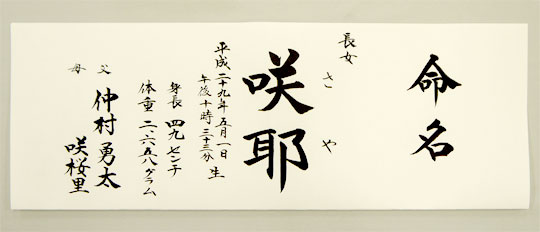 命名
長女
咲耶
さや
平成二十九年五月一日
午後十時三十三分 生
身長 四九 センチ
体重 二、六五八グラム
父 仲村 勇太
母 咲桜里